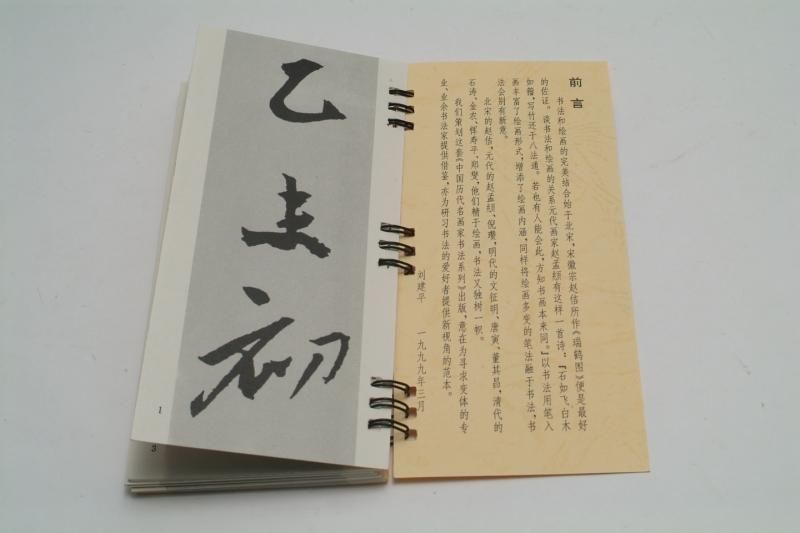 前言
书法和绘画的完美结合始于北宋，宋徽宗赵佶所作《瑞鹤图》便是最好
的佐证。谈书法和绘画的关系元代画家赵孟頫有这样一首诗：『石如飞白木
如籀，写竹还于八法通。若也有人能会此，方知书画本来同。』以书法用笔入
画丰富了绘画形式，增添了绘画内涵，同样将绘画多变的笔法融于书法，书
法会别有新意。
北宋的赵佶，元代的赵孟頫、倪瓒，明代的文征明、唐寅、董其昌，清代的
石涛、金农、恽寿平、郑燮，他们精于绘画，书法又独树一帜。
我们策划这套《中国历代名画家书法系列》出版，意在为寻求变体的专
业、业余书法家提供借鉴，亦为研习书法的爱好者提供新视角的范本。
刘建平 一九九九年三月
乙未初
1
3